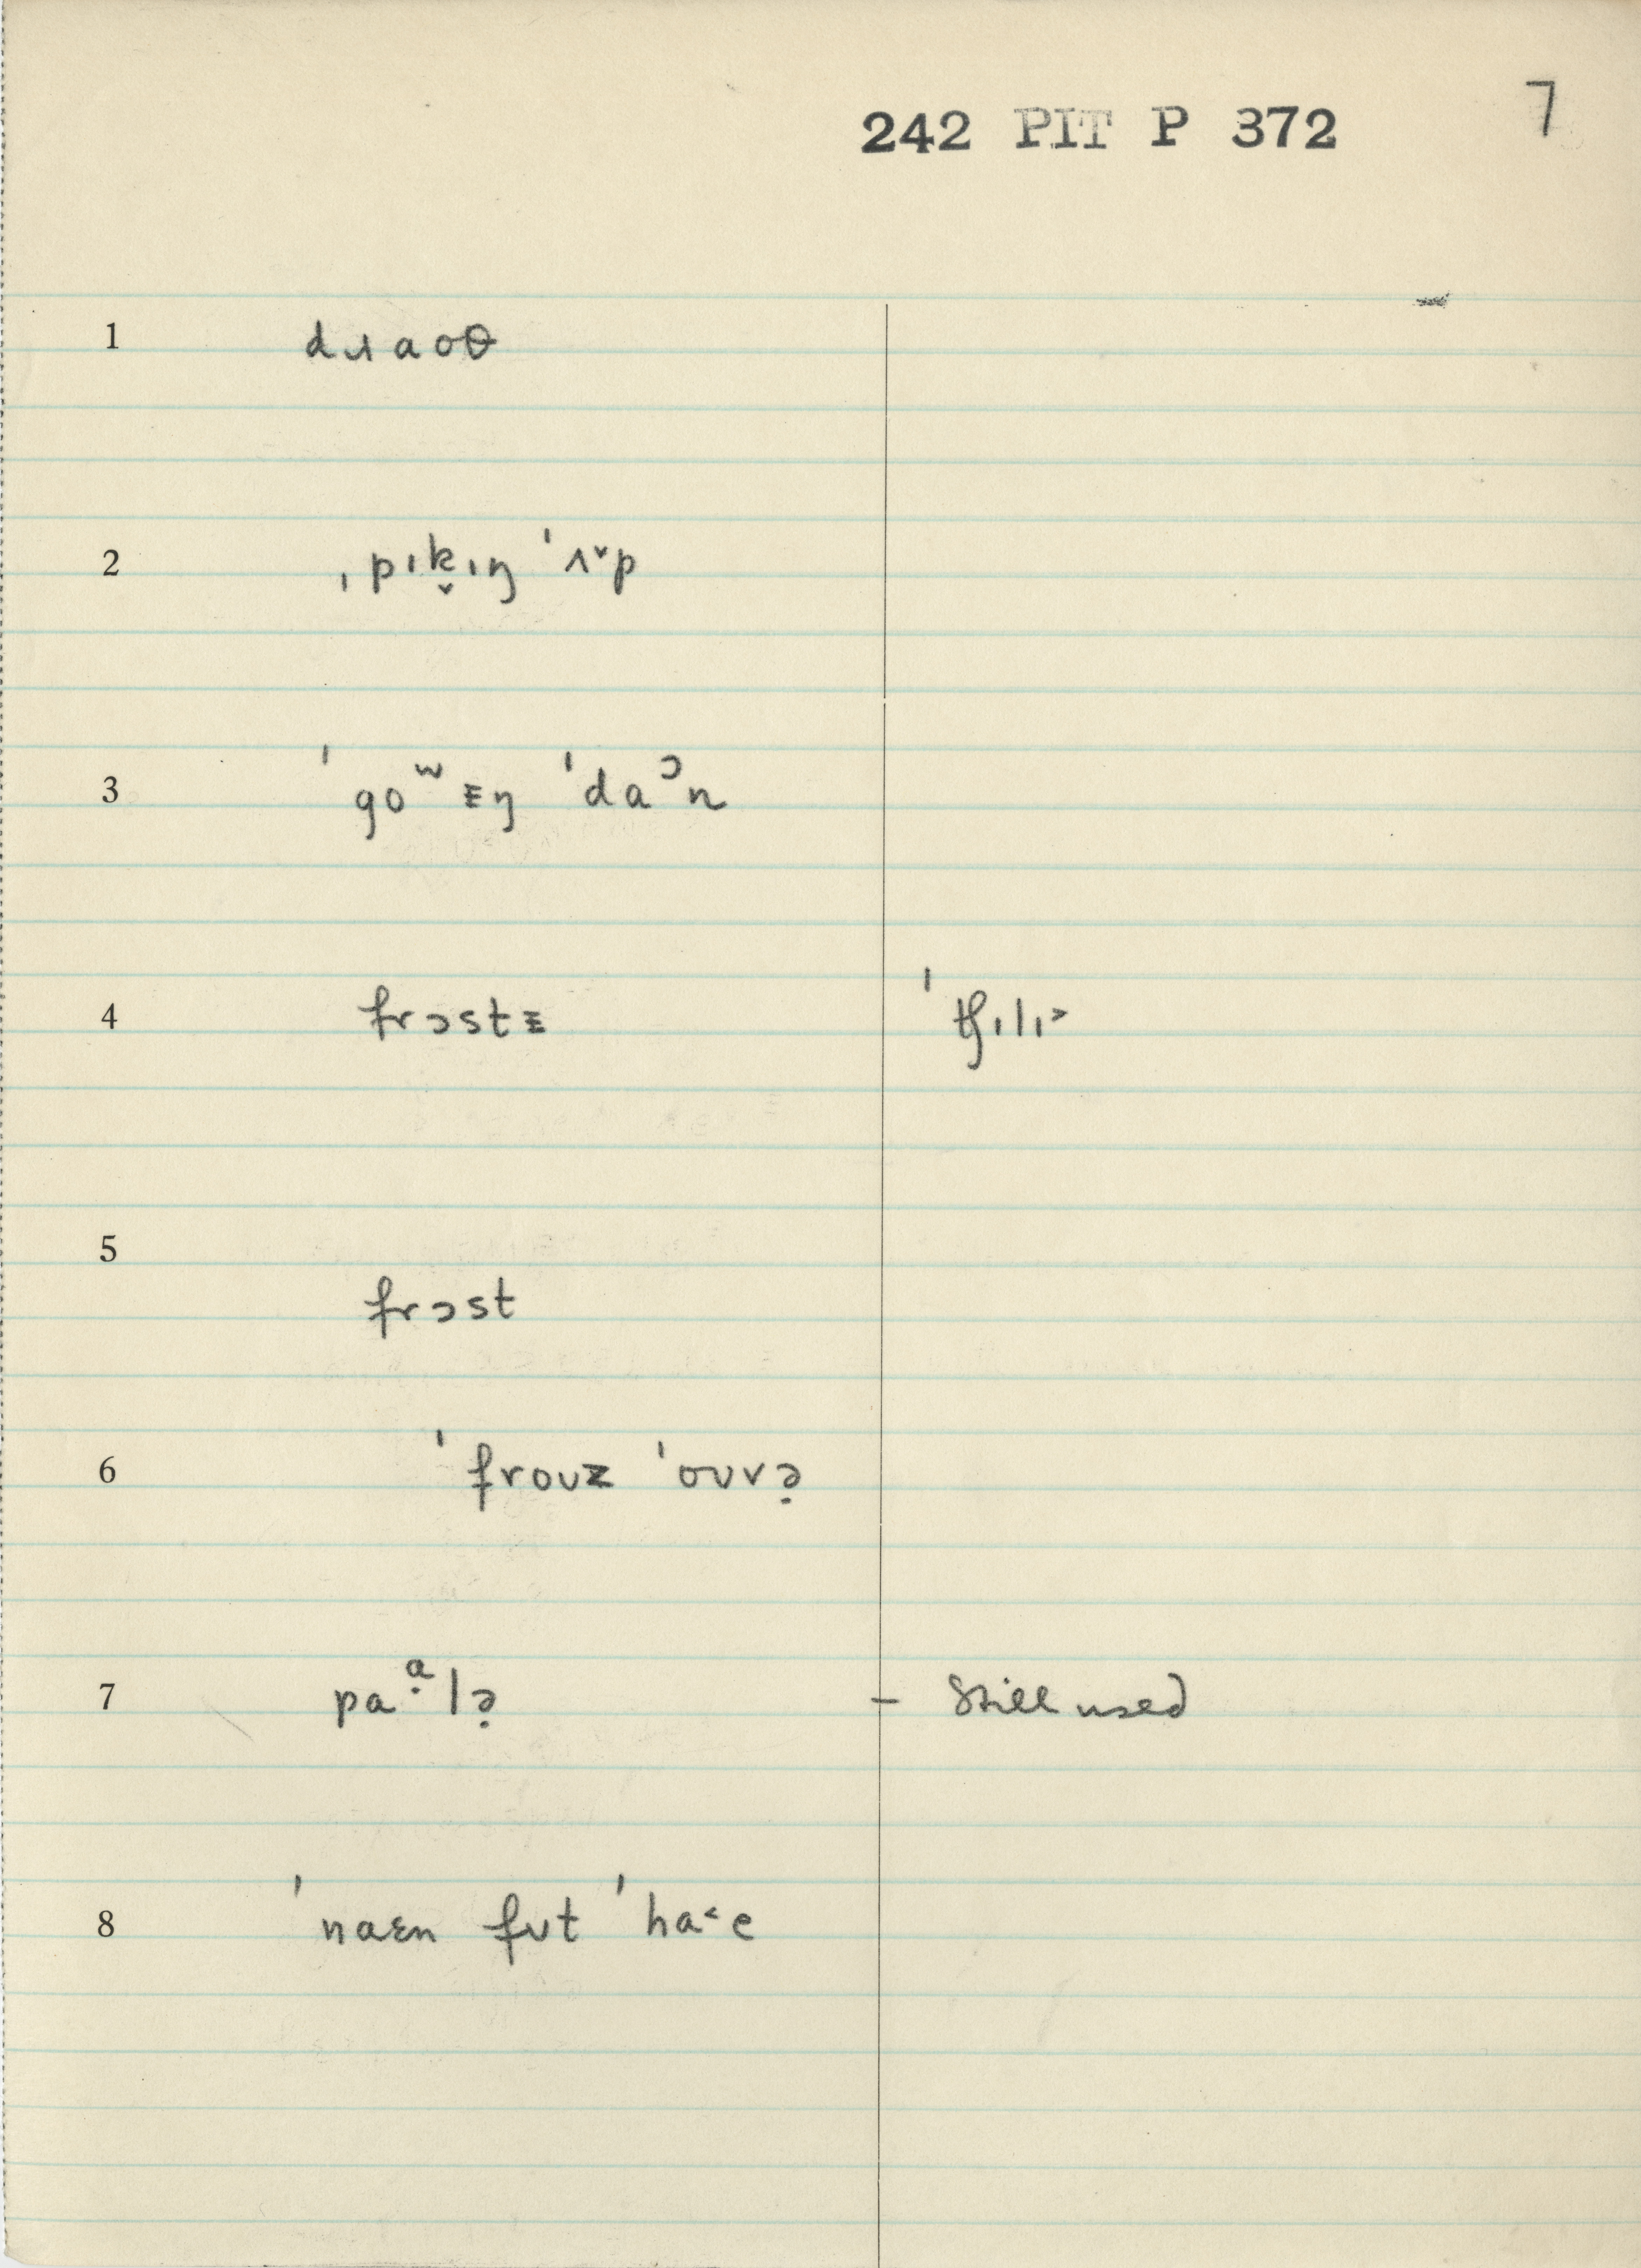 242 PIT P 372 7
1 dɹaoθ
2 ˌpɪk̬ɪŋ ˈʌ˅p
3 ˈgoʷᵻŋ ˈdaᵓn
4 frɔstᵻ ˈʧɪlɪ˃
5
frɔst
6 ˈfroʊz ˈoʊvə̣
7 paᵄ̣lə̣ – Still used
8 ˈnaɛn fʊt ˈha˂e